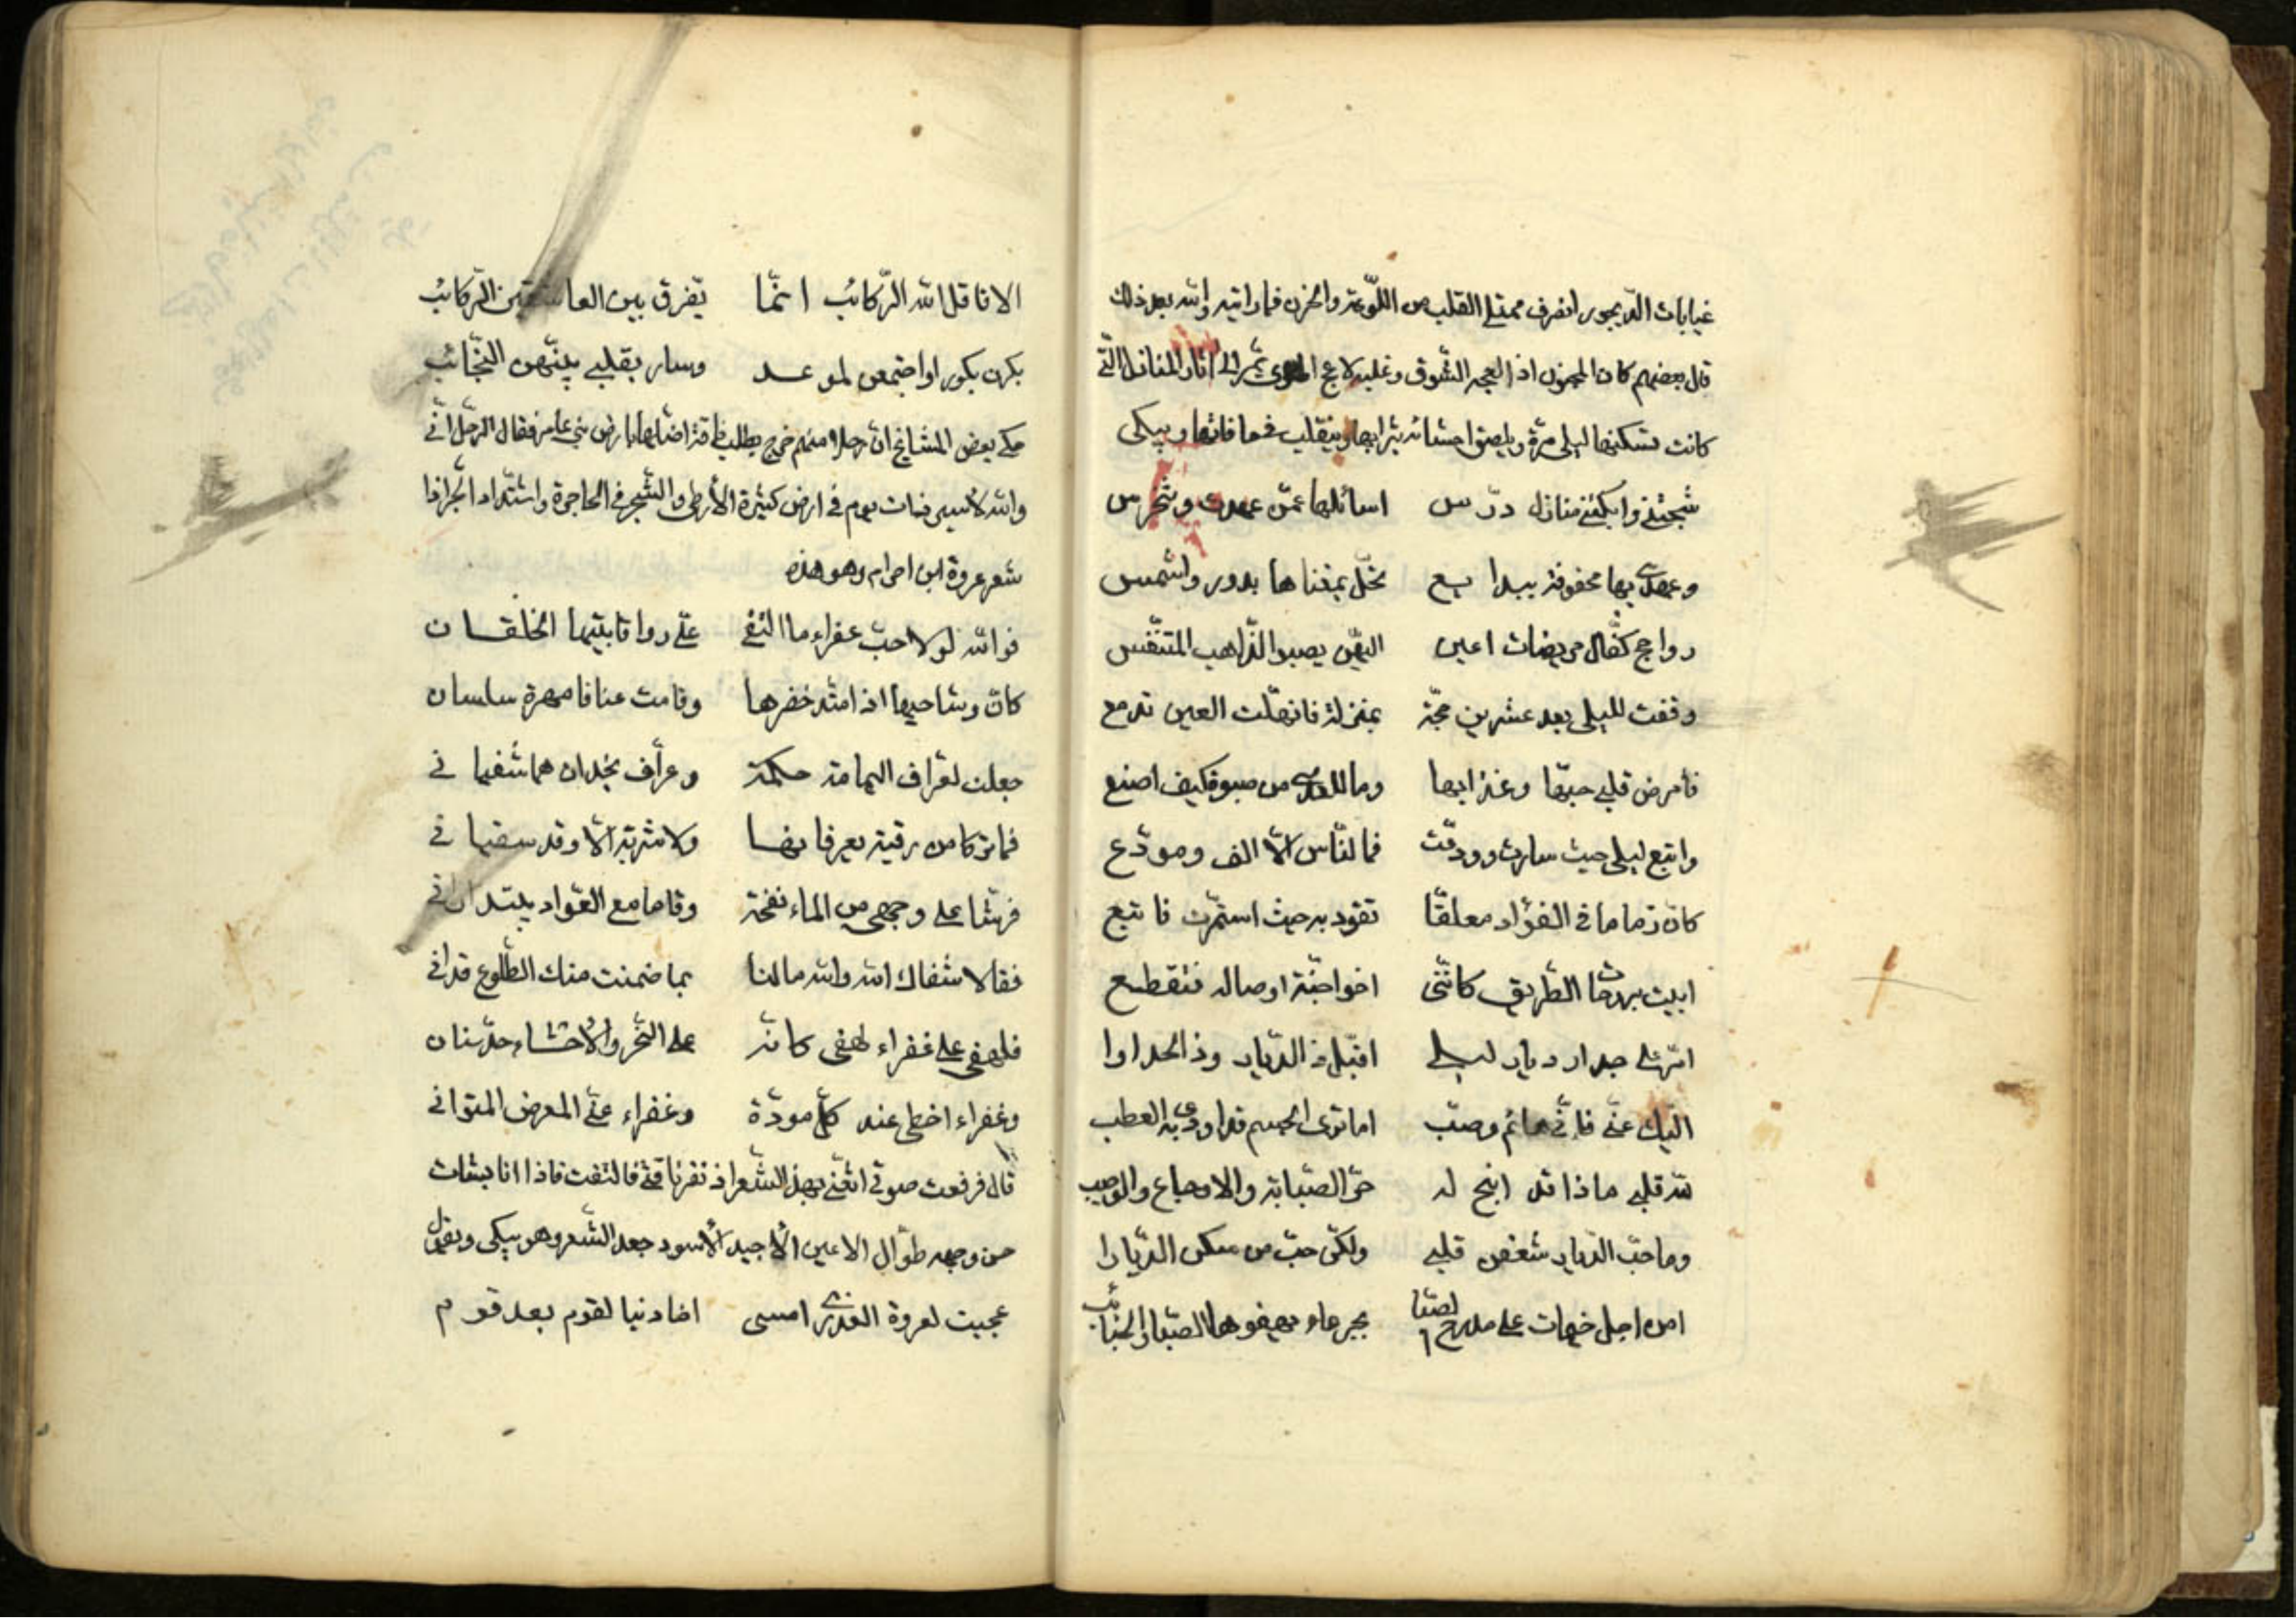 غيابات الديجور انصرف ممتلئ القلب من اللّوعة والحزن فما رايته والله بعد ذلك
قال بعضهم كان المجنون اذا الشّوق وغلبه لاعج الهوى الى اثار المنازل الّتى
كانت تسكنها ليلى مرّة ويلصق احشائه بترابها ويتقلب فى حافاتها ويبكى
شجتنى وابكتنى منازل درّس اسائلها عمّن عهدت وتخرس
وعهدى بها محفوفة ببدايع بدور واشمس
رواجح مريضات اعين اليهن يصبوا الذّاهب المتنفّس
وقفت لليلى بعد عشرين حجّة بمنزلة فانهلّت العين تدمع
فأمرض قلبى حبّها وعذابها من صبوة كيف اصنع
واتبع ليلى حيث سارت وودّعت فما لنّاس الّا الف ومودّع
كان زماما فى الفؤاد معلقّا تقود به حيث استمرّت فاتبع
ابيت الطّريق كانّنى اخوا اوصاله فتقطع
امرّ على جدار ديار ليلى اقبّل ذ الدّيار وذ الجدارا
اليك عنّى فانّى هائم وصب اما ترى الجسم قد اودى به العطب
لله قلبى ماذا قد اتيح له حرّ الصّبابة والاوجاع والوصب
وما حبّ الدّيار شغفن قلبى ولكن حبّ من سكن الدّيارا
امن اجل خيمات على مدرج لصبّا بجرعاء الصّبا والجنائب
الا قاتل الله الرّكائب انمّا تفرق بين العاشقين الرّكائب
بكرن بكورا واجتمعن لموعد وسار بقلبى بينهن النّجائب
حكى بعض المشايخ انّ رجلا منهم خرج يطلب ناقة اضلها بارض بنى عامر فقال الرجل انّى
والله لأسير ذات يوم فى ارض كثيرة الأرطى والشّجر فى الهاجرة واشتداد الحّر اذا
شعر عروة ابن احرام وهو هذه
فوالله لولا حبّ عفراء ما التقى علىّ رواقا بيتها الخلقان
كانّ وشاحيها اذ امتد خصرها وقامت عنانا مهرة سلسان
جعلت لعرّاف اليمامة حكمة وعرّاف نجد ان هما شفيانى
فما تركا من رقية يعرفانها ولا شربة الّا وقد سقيانى
فرشّا على وجهى من الماء نفحة وقاما مع العوّاد يبتدرانى
فقالا شفاك الله والله مالنا بما ضمنت منك الضّلوع
فلهفى على عفراء لهفى كانّه على النّحر والأحشاء حدّ سنان
وعفراء عنده مودّة وعفراء عنّى المعرض المتوانى
قال فرفعت صوتى اتغنّى بهذ الشّعر اذ نفر ناقتى فالتفت فاذا انا بشاب
حسن وجهه طوال الاعين الأجيد الأسود جعد الشّعر وهو يبكى ويقول
عجبت لعروة العذرى امسى احادثيا لقوم بعد قوم